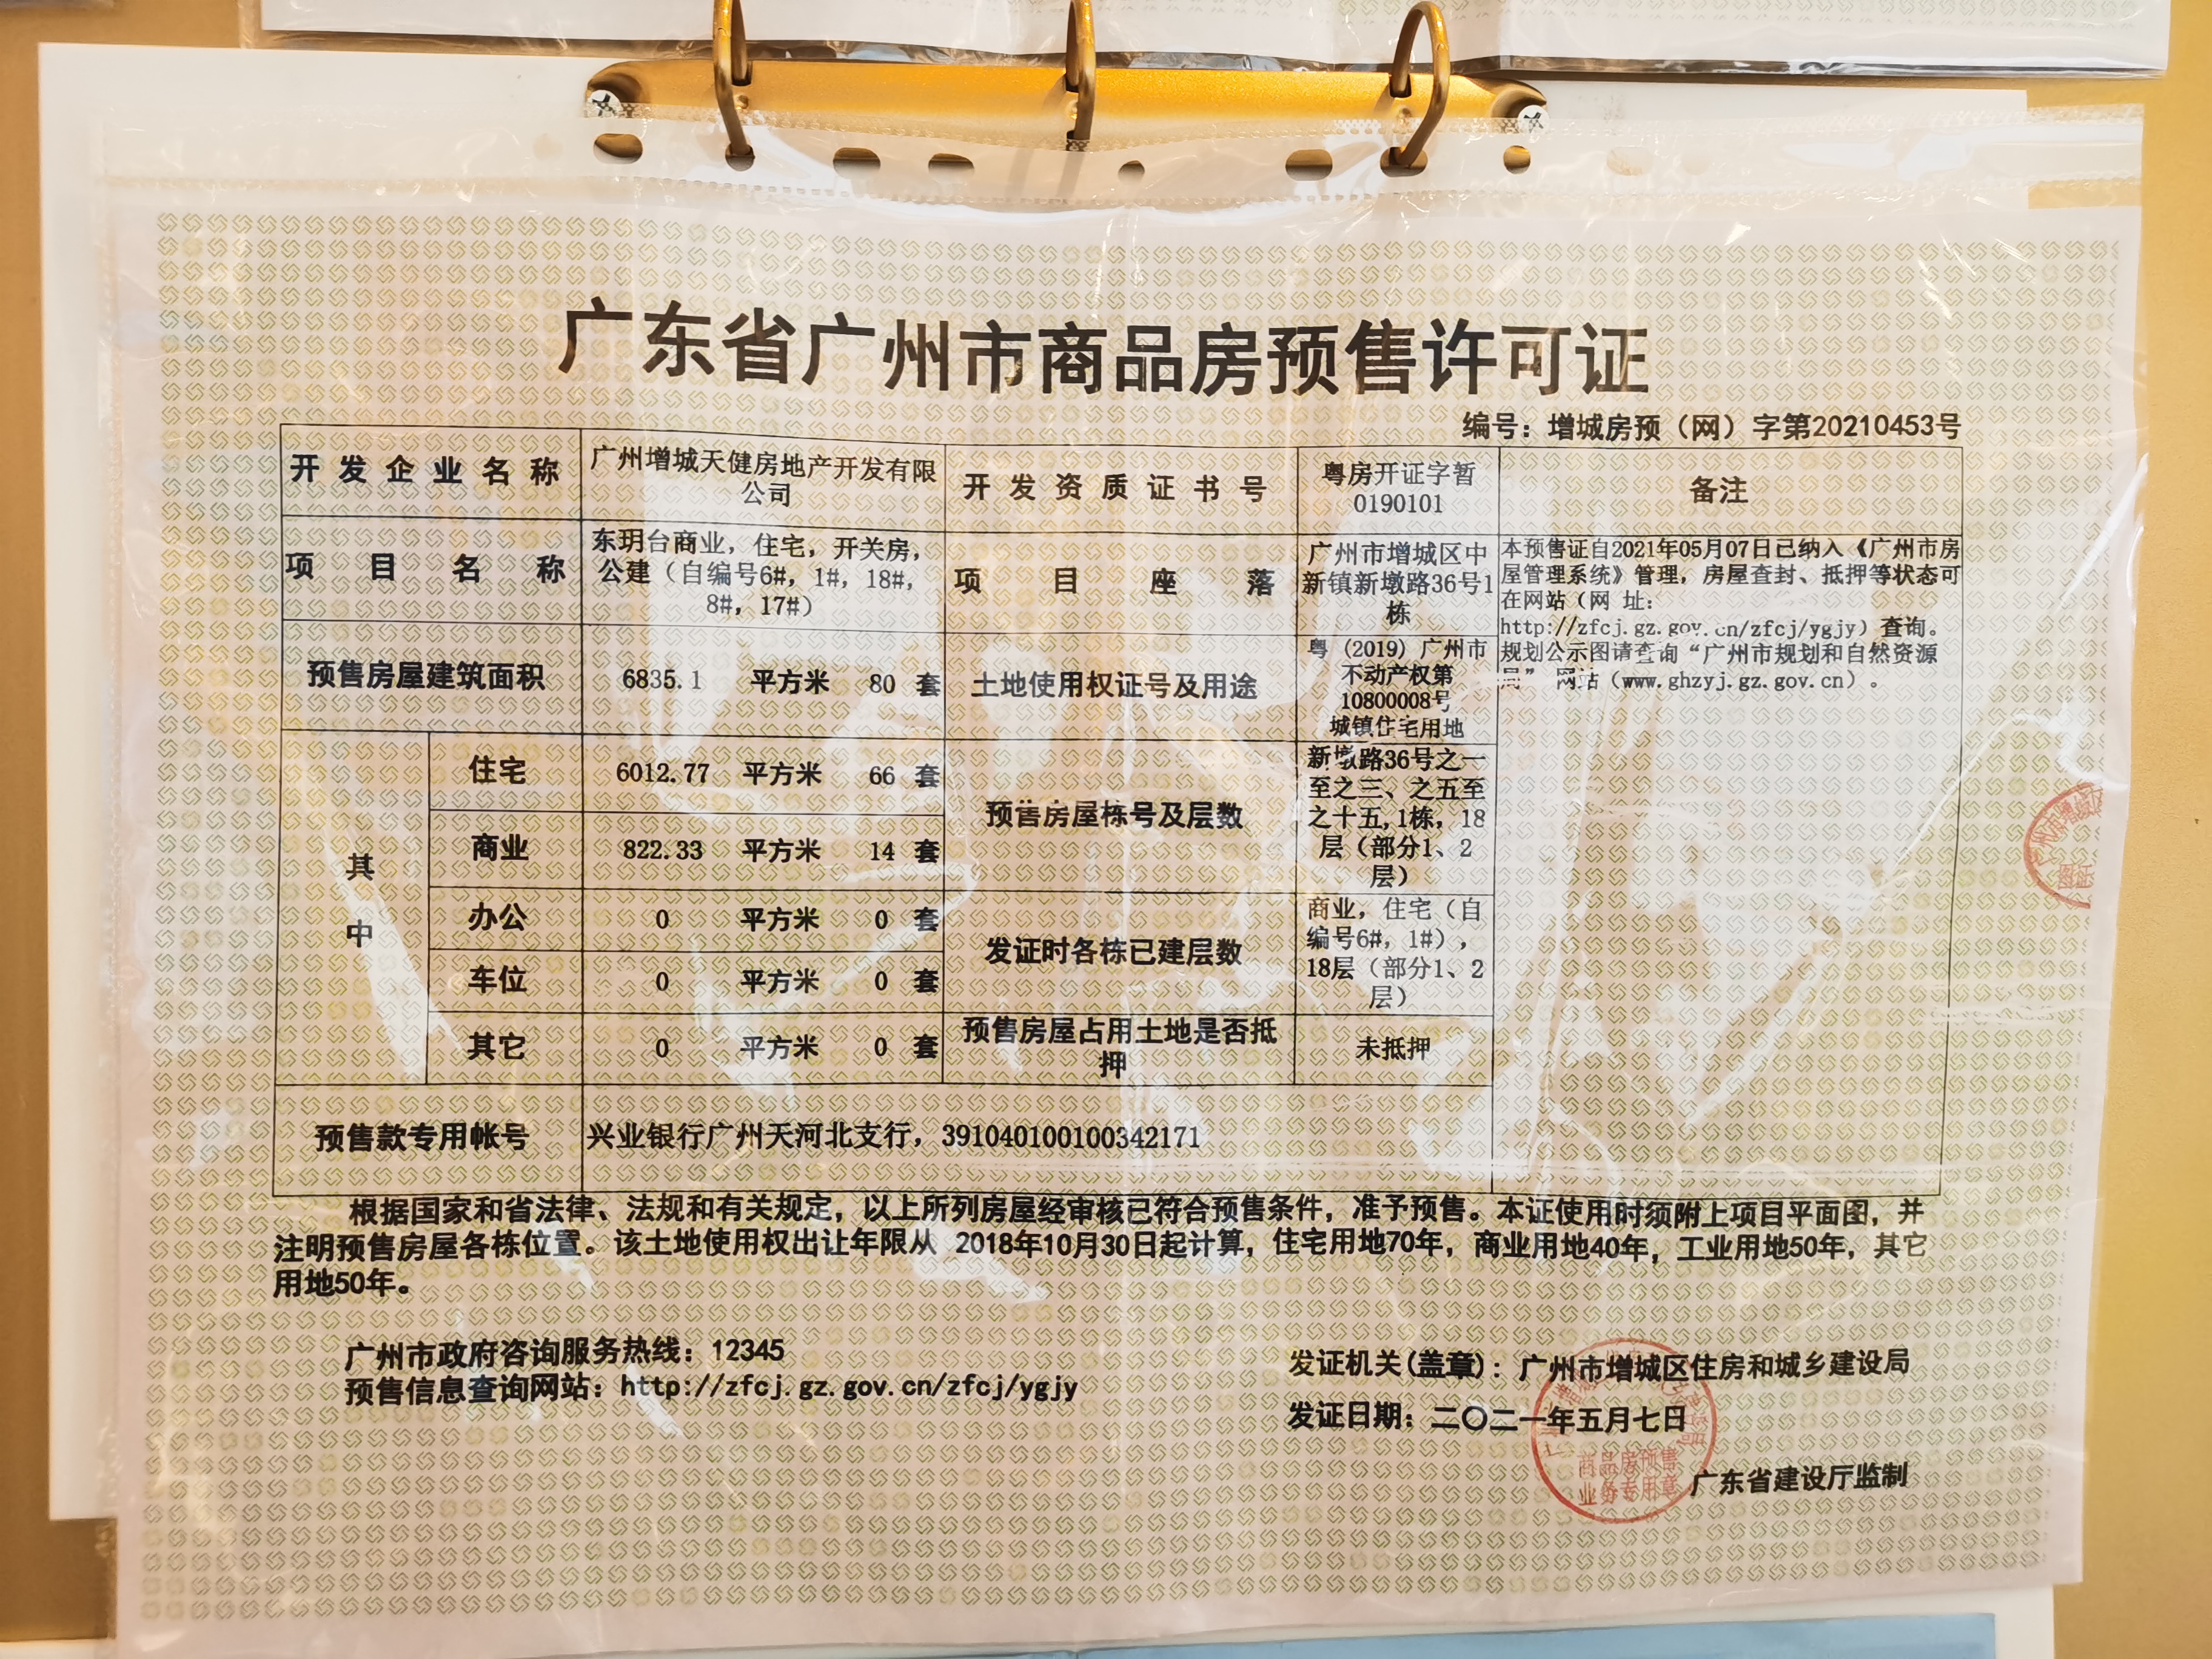 广东省广州市商品房预售许可证
编号：增城房预（网）字第20210453号
开发企业名称
广州增城天健房地产开发有限
公司
开发资质证书号
粤房开证字暂
0190101
备注
项目名称
东玥台商业，住宅，开关房，
公建（自编号6#，1#，18#，
8#，17#）
项目座落
广州市增城区中
新镇新墩路36号1
栋
本预售证自2021年05月07日已纳入《广州市房
屋管理系统》管理，房屋查封、抵押等状态可
在网站（网 址：
http://zfcj.gz.gov.cn/zfcj/ygjy）查询。
规划公示图请查询“广州市规划和自然资源
局” 网站（www.ghzyj.gz.gov.cn）。
预售房屋建筑面积
6835.1 平方米 80 套
土地使用权证号及用途
粤（2019）广州市
不动产权第
10800008号
城镇住宅用地
其中
住宅 6012.77 平方米 66 套
商业 822.33 平方米 14 套
办公 0 平方米 0 套
车位 0 平方米 0 套
其它 0 平方米 0 套
预售房屋栋号及层数
新墩路36号之一
至之三、之五至
之十五,1栋，18
层（部分1、2
层）
发证时各栋已建层数
商业，住宅（自
编号6#，1#），
18层（部分1、2
层）
预售房屋占用土地是否抵
押
未抵押
预售款专用帐号
兴业银行广州天河北支行，391040100100342171
根据国家和省法律、法规和有关规定，以上所列房屋经审核已符合预售条件，准予预售。本证使用时须附上项目平面图，并
注明预售房屋各栋位置。该土地使用权出让年限从 2018年10月30日起计算，住宅用地70年，商业用地40年，工业用地50年，其它
用地50年。
广州市政府咨询服务热线：12345
预售信息查询网站：http://zfcj.gz.gov.cn/zfcj/ygjy
发证机关(盖章)：广州市增城区住房和城乡建设局
发证日期：二〇二一年五月七日
商品房预售
业务专用章
广东省建设厅监制